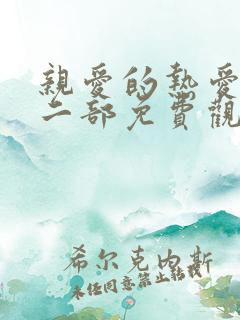 親愛的熱愛
二部免費觀
希尔克内斯
未经同意禁止转载